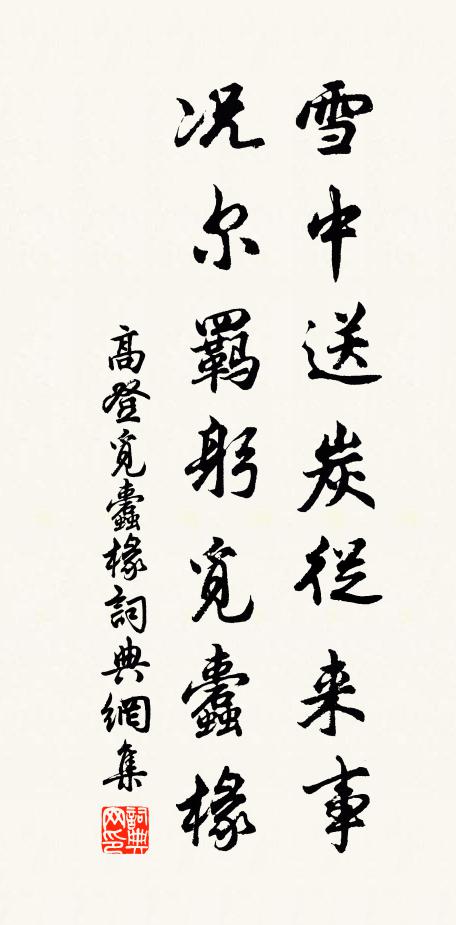 雪中送炭從来事
况尔羈躬覓蠹椽
高登覓蠹椽詞典網集
詞典网印